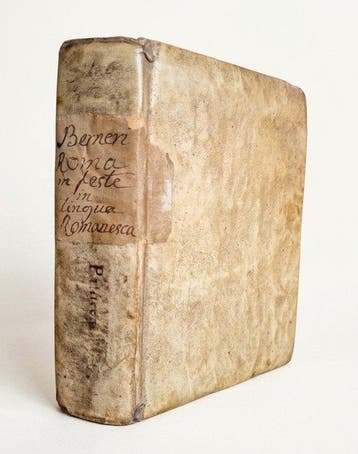 Berneri
Roma
in feste
in
lingua
Romanesca